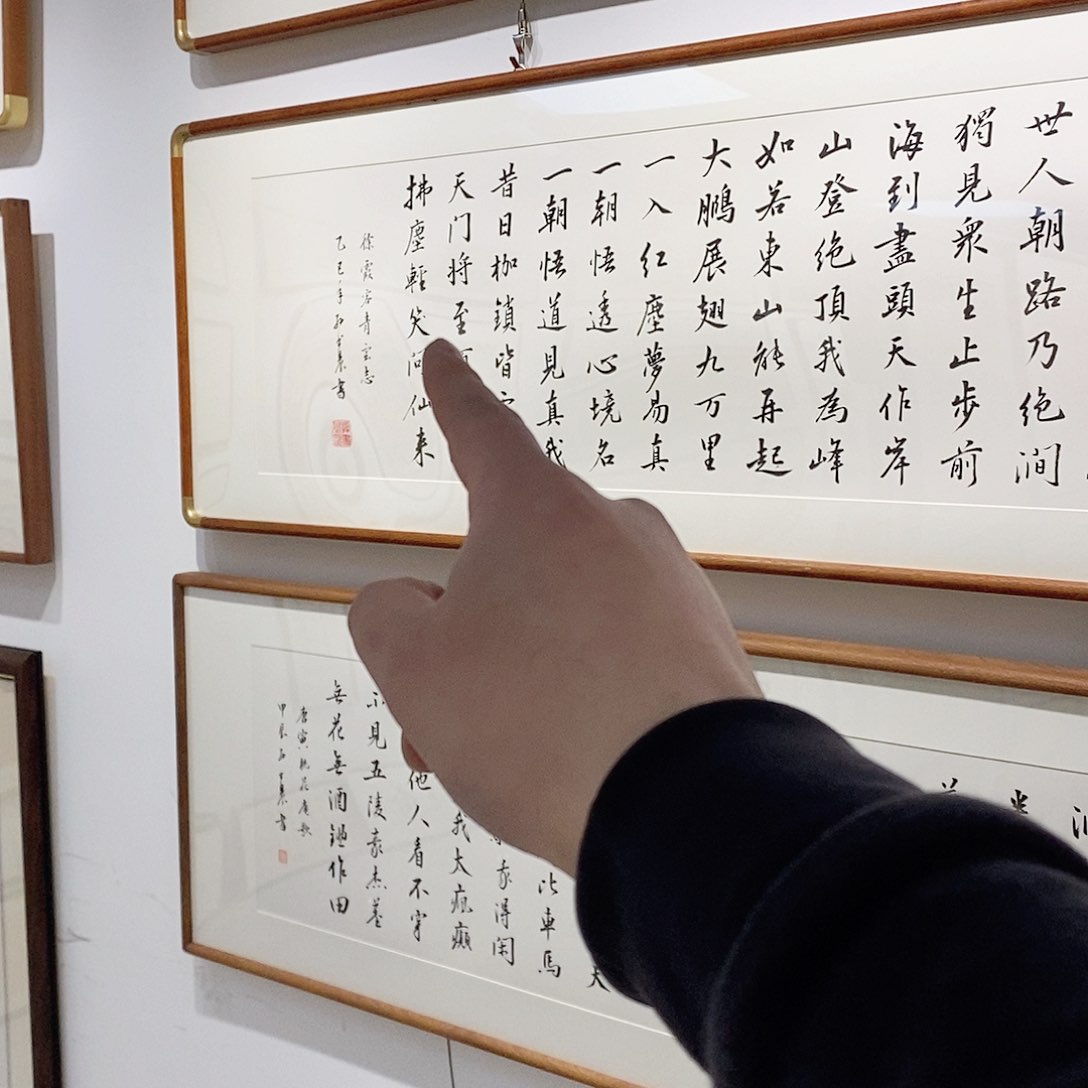 世人朝路乃绝涧
獨見衆生止步前
海到盡頭天作岸
山登绝頂我為峰
如若東山能再起
大鵬展翅九万里
一入红塵夢易真
一朝悟透心境名
一朝悟道見真我
昔日枷鎖皆
天门将至
拂塵輕笑问仙来
徐霞客青雲志
乙巳年 書
見五陵豪杰墓
無花無酒鋤作田
唐寅桃花庵歌
甲辰 書
他人看不穿
我太疯癫
家得闲
比車馬